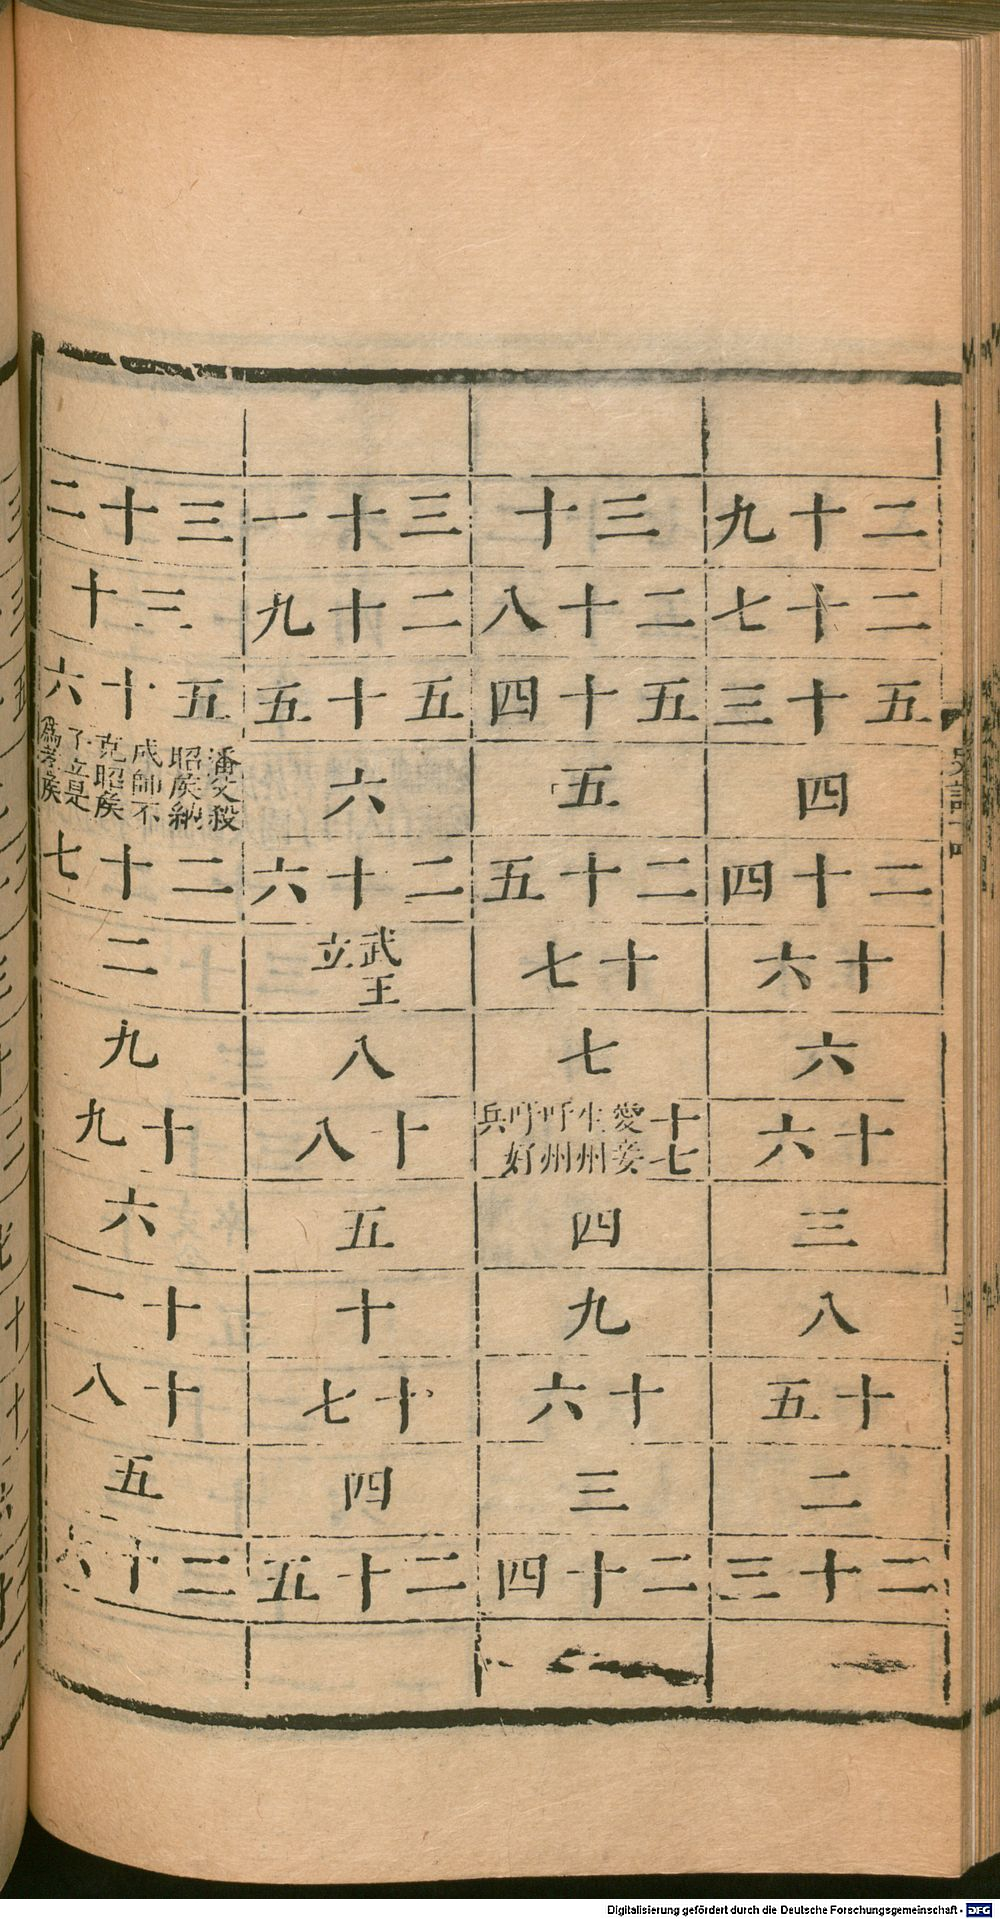 二十九
二十七
五十三
四
二十四
十六
六
十六
三
八
十五
二
二十三
三十
二十八
五十四
五
二十五
十七
七
十七愛妾生州吁州吁好兵
四
九
十六
三
二十四
三十一
二十九
五十五
六
二十六
武王立
八
十八
五
十
十七
四
二十五
三十二
三十
五十六
潘父殺昭矦納成師不克昭矦子立是爲孝矦
二十七
二
九
十九
六
十一
十八
五
二十六
Digitalisierung gefördert durch die Deutsche Forschungsgemeinschaft - DFG